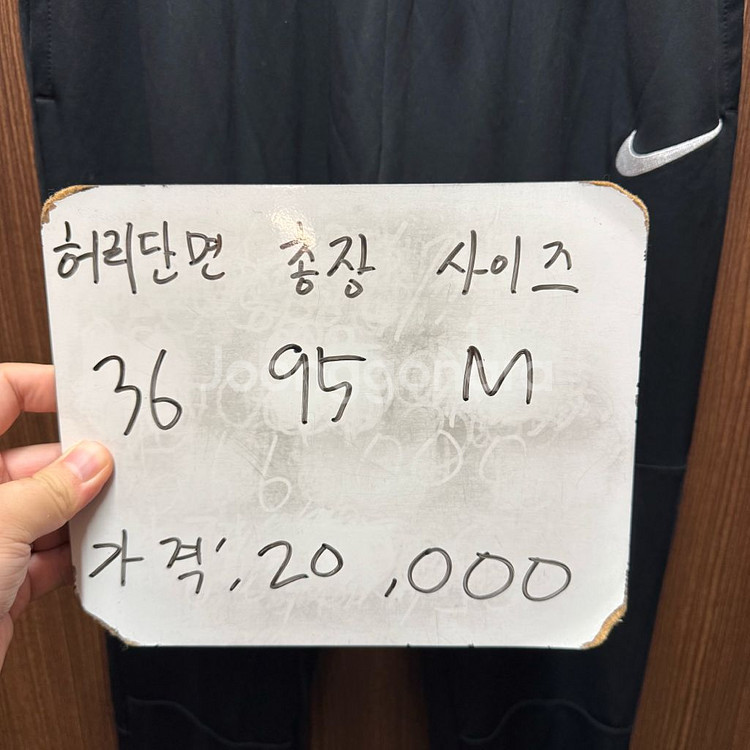 허리단면 총장 사이즈
36 95 M
Joonggonara
가격; 20,000